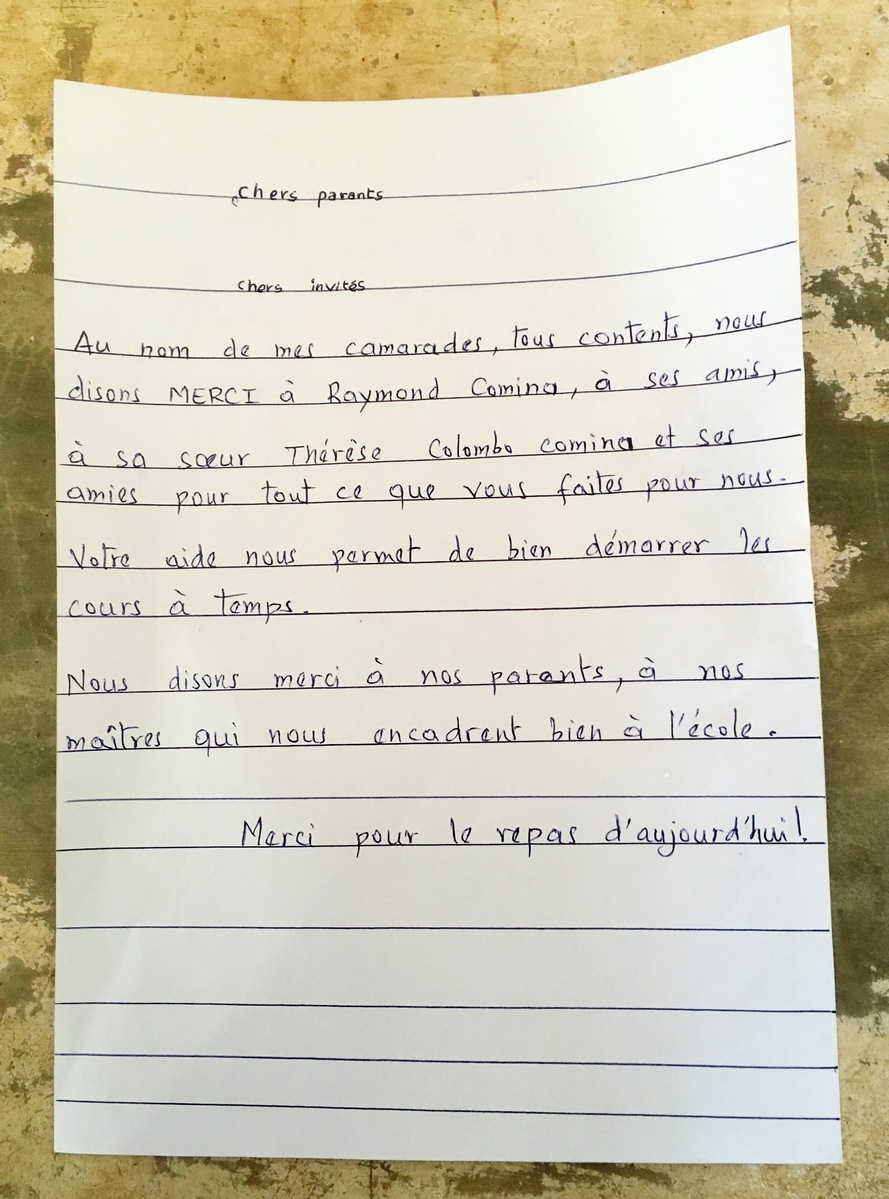 Chers parents
Chers invités
Au nom de mes camarades, tous contents, nous
disons MERCI à Raymond Comina, à ses amis,
à sa sœur Thérèse Colombo comina et ses
amies pour tout ce que vous faites pour nous.
Votre aide nous permet de bien démarrer les
cours à temps.
Nous disons merci à nos parents, à nos
maîtres qui nous encadrent bien à l'école.
Merci pour le repas d'aujourd'hui!